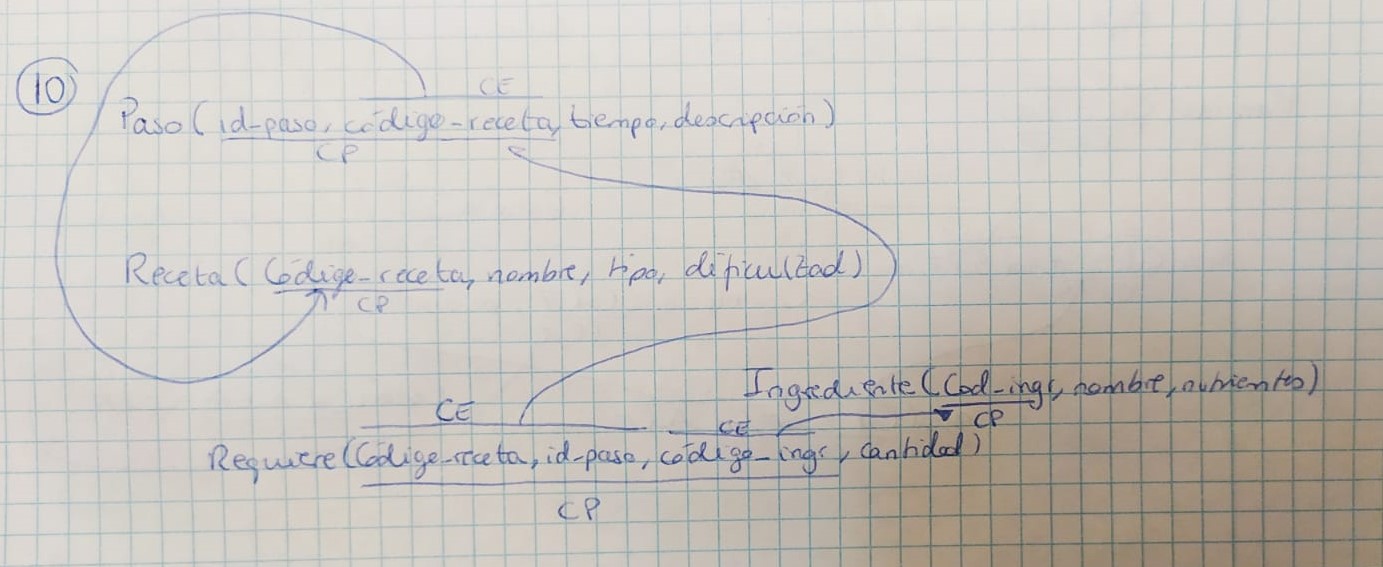 10
CE
Paso (id-paso, código-receta, tiempo, descripción)
CP
Receta (Código-receta, nombre, tipo, dificultad)
CP
Ingrediente (Cod-ingr, nombre, nutrientes)
CP
CE CE
Requiere (Código-receta, id-paso, código-ingr, cantidad)
CP